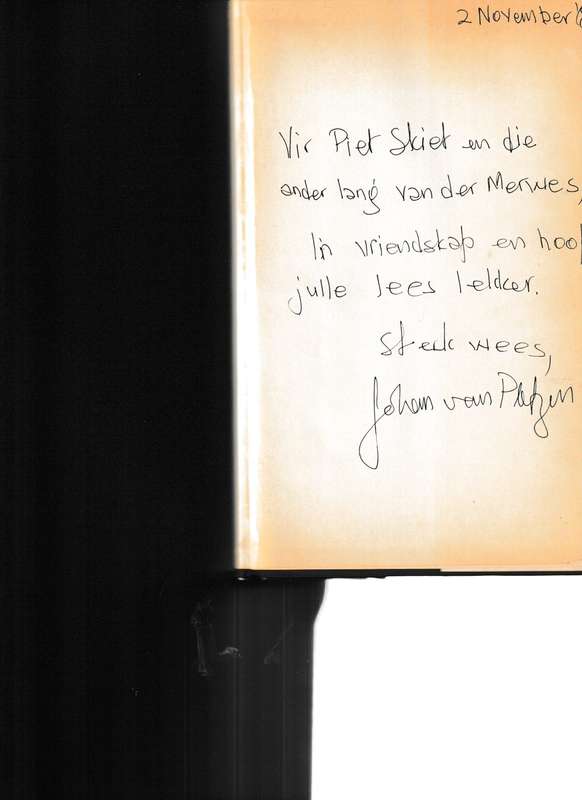 2 November
Vir Piet Skiet en die
ander lang van der Merwes,
In vriendskap en hoop
julle lees lekker.
Sterk wees,
Johan van